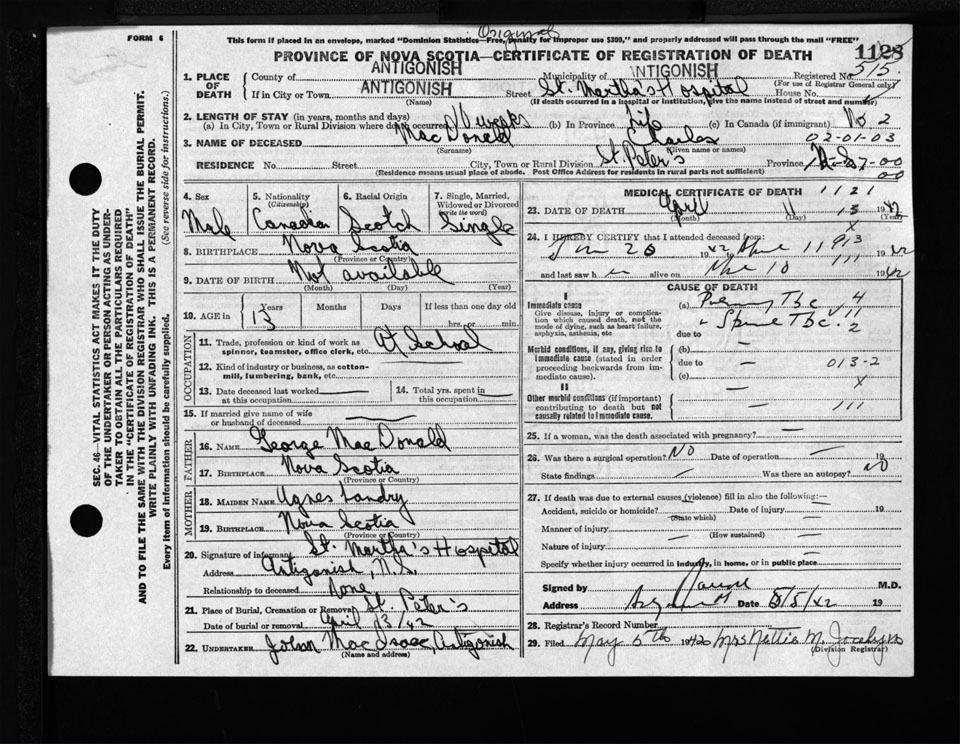 FORM 6
This form if placed in an envelope, marked "Dominion Statistics—Free, penalty for improper use $300," and properly addressed will pass through the mail "FREE"
Original
PROVINCE OF NOVA SCOTIA—CERTIFICATE OF REGISTRATION OF DEATH
1128
1. PLACE OF DEATH
County of ANTIGONISH Municipality of ANTIGONISH Registered No. 515.
(For use of Registrar General only)
If in City or Town ANTIGONISH Street St. Martha's Hospital House No.
(Name) (If death occurred in a hospital or institution, give the name instead of street and number)
2. LENGTH OF STAY (in years, months and days)
(a) In City, Town or Rural Division where death occurred 10 weeks (b) In Province Life (c) In Canada (if immigrant) No 2
3. NAME OF DECEASED MacDonald Charles 02-01-03
(Surname) (Given name or names)
RESIDENCE No. Street City, Town or Rural Division St Peter's Province N.S. 27-00
(Residence means usual place of abode. Post Office Address for residents in rural parts not sufficient) 00
4. Sex Male
5. Nationality (Citizenship) Canadian
6. Racial Origin Scotch
7. Single, Married, Widowed or Divorced (write the word) Single
8. BIRTHPLACE Nova Scotia
(Province or Country)
9. DATE OF BIRTH Not available
(Month) (Day) (Year)
10. AGE in Years 13 Months Days If less than one day old hrs. or min.
OCCUPATION
11. Trade, profession or kind of work as spinner, teamster, office clerk, etc. At School
12. Kind of industry or business, as cotton-mill, lumbering, bank, etc. —
13. Date deceased last worked at this occupation —
14. Total yrs. spent in this occupation —
15. If married give name of wife or husband of deceased —
FATHER
16. NAME George MacDonald
17. BIRTHPLACE Nova Scotia
(Province or Country)
MOTHER
18. MAIDEN NAME Agnes Landry
19. BIRTHPLACE Nova Scotia
(Province or Country)
20. Signature of informant St. Martha's Hospital
Address Antigonish, N.S.
Relationship to deceased None
21. Place of Burial, Cremation or Removal St. Peter's
Date of burial or removal April 13/42
22. UNDERTAKER John MacIsaac Antigonish
(Name and address)
MEDICAL CERTIFICATE OF DEATH 1121
23. DATE OF DEATH April 11 13 1942
(Month) (Day) (Year)
24. I HEREBY CERTIFY that I attended deceased from:
Jan 28 1942 to April 11 1942
and last saw h im alive on Apr 10 1942
CAUSE OF DEATH
I
Immediate cause
Give disease, injury or complication which caused death, not the mode of dying, such as heart failure, asphyxia, asthenia, etc
(a) Pulmonary Tbc 14
+ Spine Tbc. 2
due to
Morbid conditions, if any, giving rise to immediate cause (stated in order proceeding backwards from immediate cause).
(b) —
due to — 013-2
(c) — x
II
Other morbid conditions (if important) contributing to death but not causally related to immediate cause.
— 111
25. If a woman, was the death associated with pregnancy? —
26. Was there a surgical operation? NO Date of operation — 19
State findings — Was there an autopsy? NO
27. If death was due to external causes (violence) fill in also the following:—
Accident, suicide or homicide? — Date of injury — 19
(State which)
Manner of injury —
(How sustained)
Nature of injury —
Specify whether injury occurred in industry, in home, or in public place
Signed by M.D.
Address Date 5/5/42 19
28. Registrar's Record Number
29. Filed May 5th 1942 Mrs Nettie M. Jocelyn
(Division Registrar)
SEC. 46—VITAL STATISTICS ACT MAKES IT THE DUTY
OF THE UNDERTAKER OR PERSON ACTING AS UNDER-
TAKER TO OBTAIN ALL THE PARTICULARS REQUIRED
IN THE "CERTIFICATE OF REGISTRATION OF DEATH"
AND TO FILE THE SAME WITH THE DIVISION REGISTRAR WHO SHALL ISSUE THE BURIAL PERMIT.
WRITE PLAINLY WITH UNFADING INK. THIS IS A PERMANENT RECORD.
Every item of information should be carefully supplied. (See reverse side for instructions.)